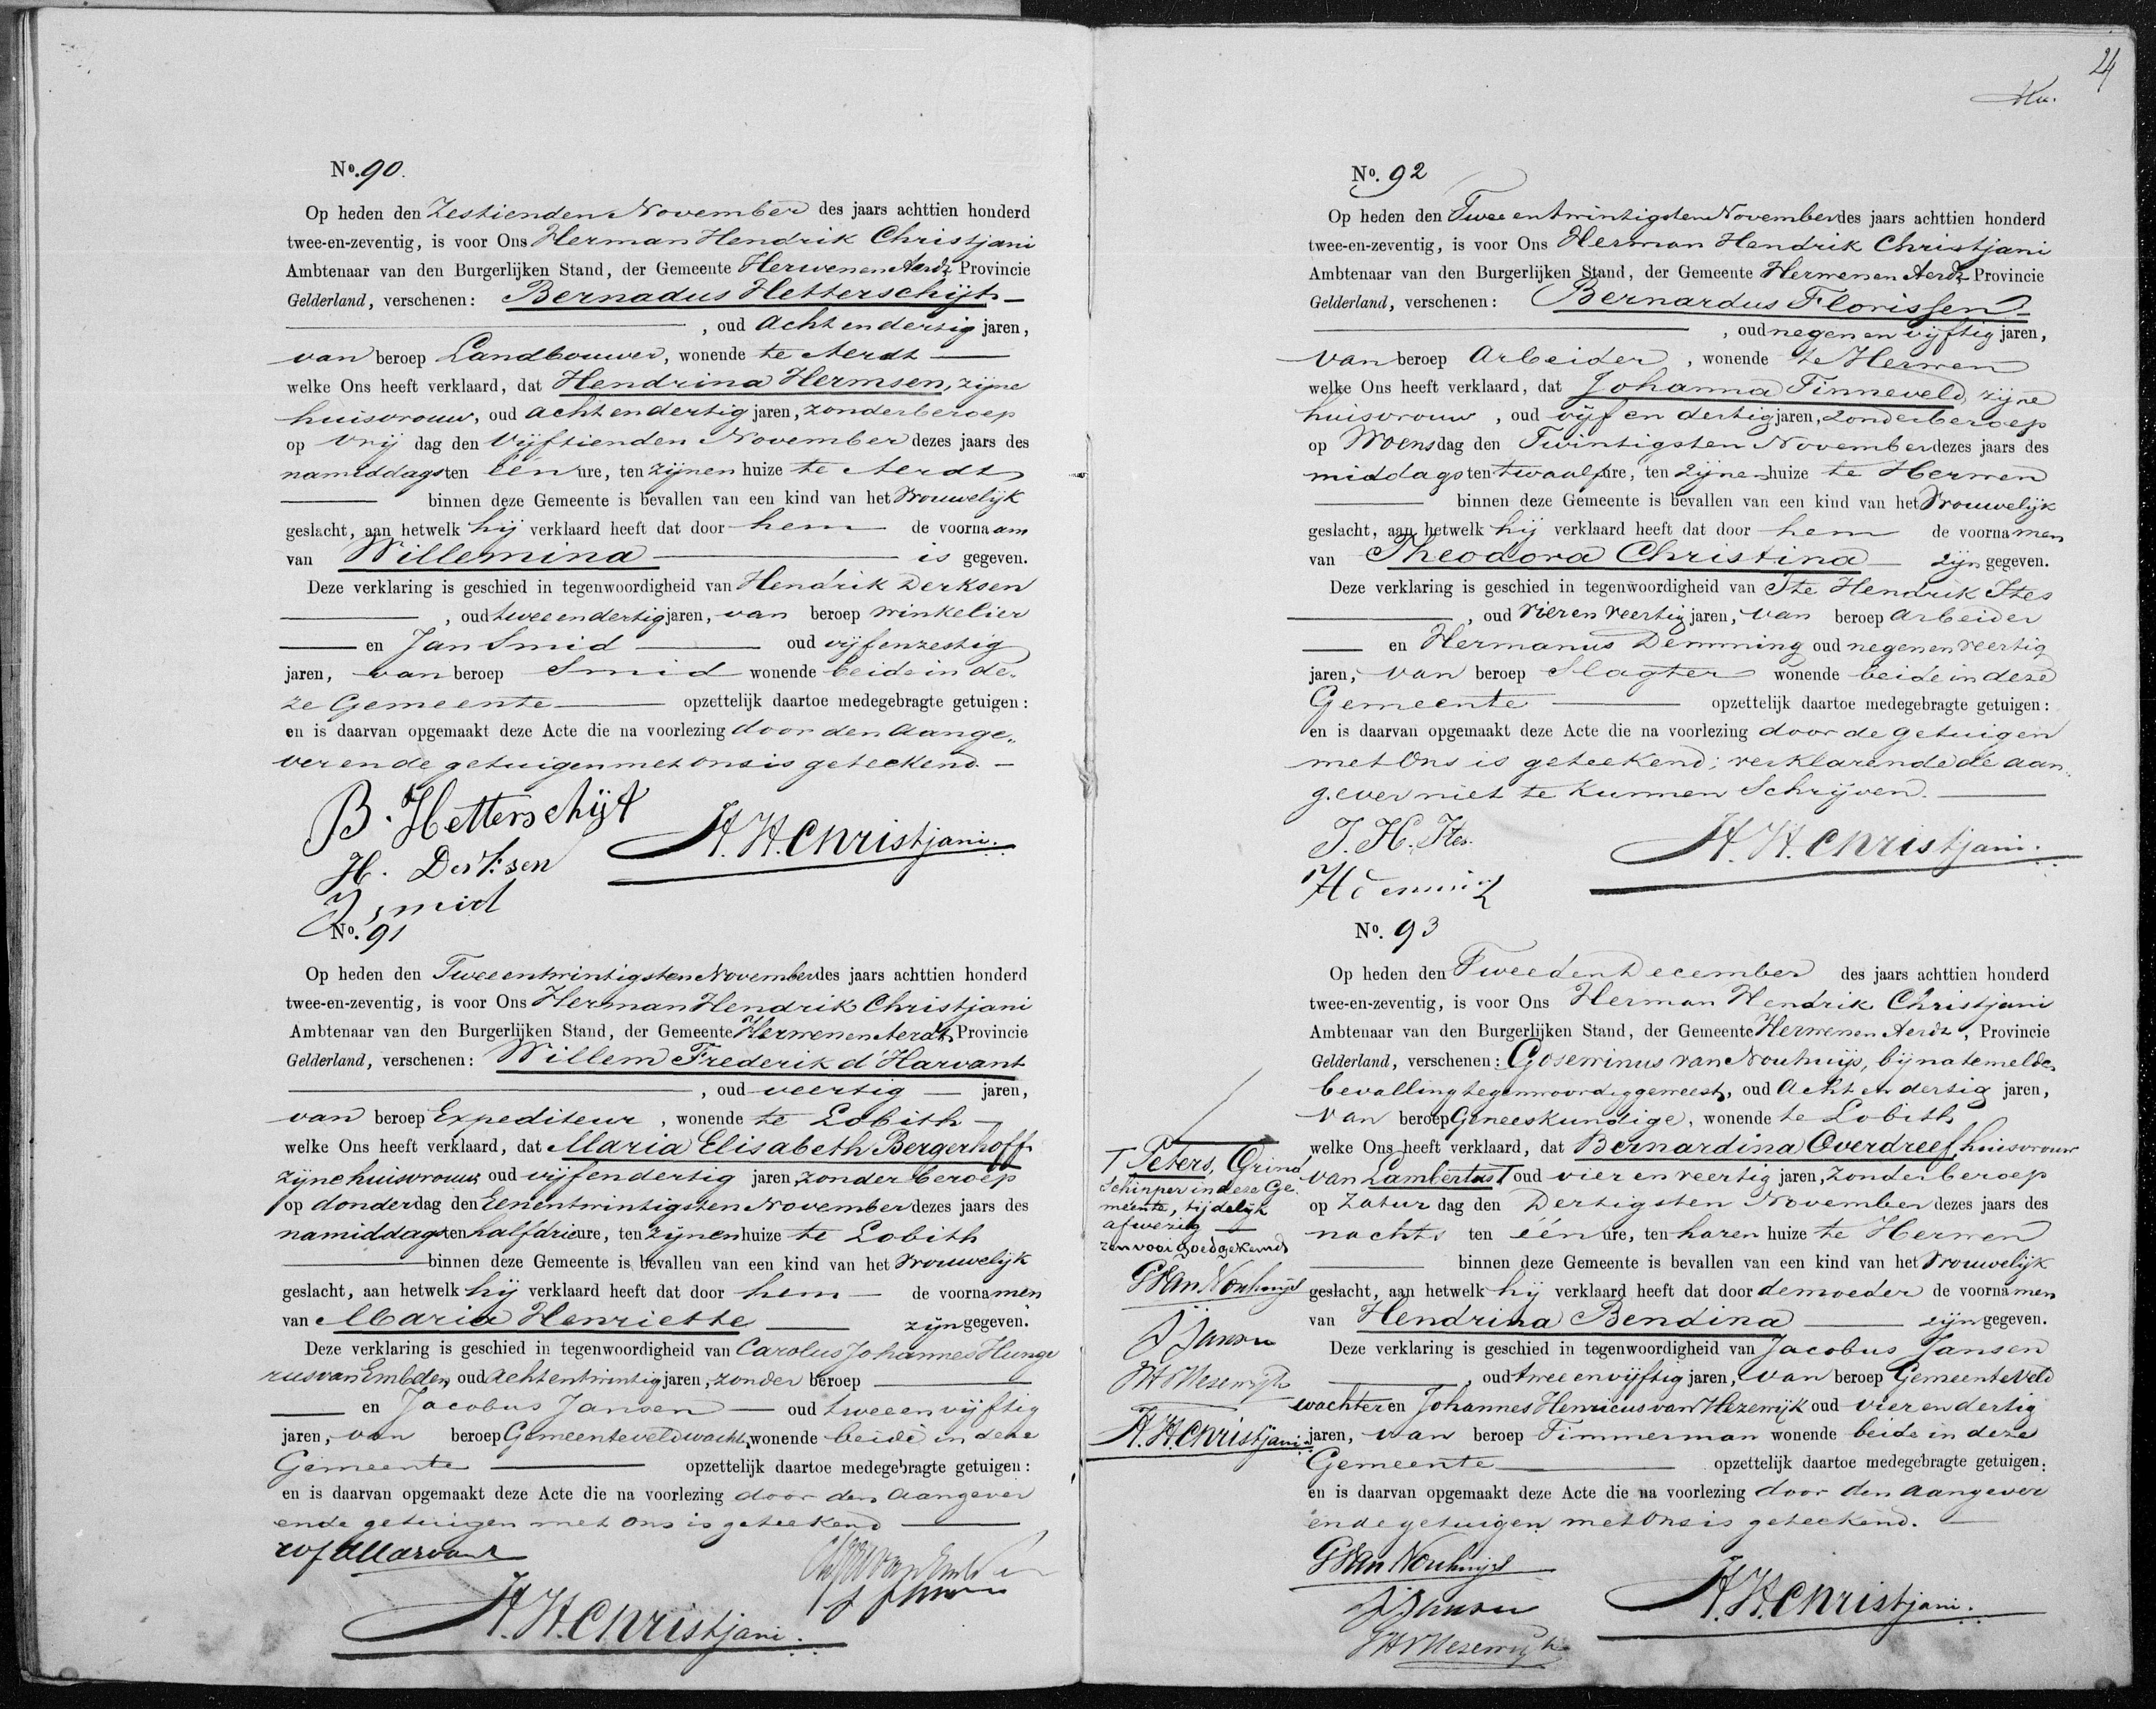 No. 90.
Op heden den Zestienden November des jaars achttien honderd
twee-en-zeventig, is voor Ons Herman Hendrik Christjani
Ambtenaar van den Burgerlijken Stand, der Gemeente Herwen en Aerdt Provincie
Gelderland, verschenen: Bernadus Hetterschijt
, oud Acht en dertig jaren,
van beroep Landbouwer, wonende te Aerdt
welke Ons heeft verklaard, dat Hendrina Hermsen, zijne
huisvrouw, oud acht en dertig jaren, zonder beroep
op Vrij dag den Vijftienden November dezes jaars des
namiddags ten één ure, ten zijnen huize te Aerdt
binnen deze Gemeente is bevallen van een kind van het Vrouwelijk
geslacht, aan hetwelk hij verklaard heeft dat door hem de voornaam
van Willemina is gegeven.
Deze verklaring is geschied in tegenwoordigheid van Hendrik Derksen
, oud twee en dertig jaren, van beroep winkelier
en Jan Smid oud vijf en zestig
jaren, van beroep Smid wonende beide in de-
ze Gemeente opzettelijk daartoe medegebragte getuigen:
en is daarvan opgemaakt deze Acte die na voorlezing door den aange-
ver en de getuigen met ons is geteekend.
B. Hetterschijt
H. H. Christjani.
H. Derksen
J smid
No. 91
Op heden den Twee en twintigsten November des jaars achttien honderd
twee-en-zeventig, is voor Ons Herman Hendrik Christjani
Ambtenaar van den Burgerlijken Stand, der Gemeente Herwen en Aerdt, Provincie
Gelderland, verschenen: Willem Frederik d'Harvant
, oud veertig jaren,
van beroep Expediteur, wonende te Lobith
welke Ons heeft verklaard, dat Maria Elisabeth Bergerhoff
zijne huisvrouw oud vijf en dertig jaren, zonder beroep
op donderdag den Een en twintigsten November dezes jaars des
namiddags ten half drie ure, ten zijnen huize te Lobith
binnen deze Gemeente is bevallen van een kind van het Vrouwelijk
geslacht, aan hetwelk hij verklaard heeft dat door hem de voornamen
van Maria Henriette zijn gegeven.
Deze verklaring is geschied in tegenwoordigheid van Carolus Johannes Hunge
rus van Embden, oud Acht en twintig jaren, zonder beroep
en Jacobus Jansen oud twee en vijftig
jaren, van beroep Gemeenteveldwacht, wonende beide in deze
Gemeente opzettelijk daartoe medegebragte getuigen:
en is daarvan opgemaakt deze Acte die na voorlezing door den Aangever
en de getuigen met ons is geteekend
H. H. Christjani.
24
No. 92
Op heden den Twee en twintigsten November des jaars achttien honderd
twee-en-zeventig, is voor Ons Herman Hendrik Christjani
Ambtenaar van den Burgerlijken Stand, der Gemeente Herwen en Aerdt Provincie
Gelderland, verschenen: Bernardus Florissen
, oud negen en vijftig jaren,
van beroep Arbeider, wonende te Herwen
welke Ons heeft verklaard, dat Johanna Tinneveld, zijne
huisvrouw, oud vijf en dertig jaren, zonder beroep
op Woensdag den Twintigsten November dezes jaars des
middags ten twaalf ure, ten zijnen huize te Herwen
binnen deze Gemeente is bevallen van een kind van het Vrouwelijk
geslacht, aan hetwelk hij verklaard heeft dat door hem de voornamen
van Theodora Christina zijn gegeven.
Deze verklaring is geschied in tegenwoordigheid van Ite Hendrik Ites
, oud vier en veertig jaren, van beroep Arbeider
en Hermanus Demming oud negen en veertig
jaren, van beroep Slagter wonende beide in deze
Gemeente opzettelijk daartoe medegebragte getuigen:
en is daarvan opgemaakt deze Acte die na voorlezing door de getuigen
met Ons is geteekend; verklarende de aan-
gever niet te kunnen Schrijven.
J. H. Ites.
H. H. Christjani.
H Demming
No. 93
Op heden den Tweeden December des jaars achttien honderd
twee-en-zeventig, is voor Ons Herman Hendrik Christjani
Ambtenaar van den Burgerlijken Stand, der Gemeente Herwen en Aerdt, Provincie
Gelderland, verschenen: Gosewinus van Nouhuijs, bij na te melden
bevalling tegenwoordig geweest, oud Acht en dertig jaren,
van beroep Geneeskundige, wonende te Lobith
welke Ons heeft verklaard, dat Bernardina Overdreef, huisvrouw
van Lambertus T oud vier en veertig jaren, zonder beroep
op Zaturdag den Dertigsten November dezes jaars des
nachts ten één ure, ten haren huize te Herwen
binnen deze Gemeente is bevallen van een kind van het Vrouwelijk
geslacht, aan hetwelk hij verklaard heeft dat door de moeder de voornamen
van Hendrina Bendina zijn gegeven.
Deze verklaring is geschied in tegenwoordigheid van Jacobus Jansen
, oud twee en vijftig jaren, van beroep Gemeente Veld
wachter en Johannes Henricus van Hezewijk oud vier en dertig
jaren, van beroep Timmerman wonende beide in deze
Gemeente opzettelijk daartoe medegebragte getuigen:
en is daarvan opgemaakt deze Acte die na voorlezing door den aangever
en de getuigen met Ons is geteekend.
GVan Nouhuijs
J Jansen
H. H. Christjani.
JHVHesewijk
T Peters, Grind
schipper in deze Ge
meente, tijdelijk
afwezig
renvooi goedgekeurd
GVan Nouhuijs
J Jansen
JHVHesewijk
H. H. Christjani